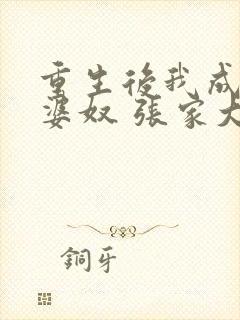 重生後我成
婆奴 張家大
銅牙